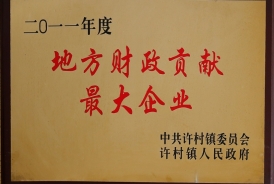 二〇一一年度
地方财政贡献
最大企业
中共许村镇委员会
许村镇人民政府